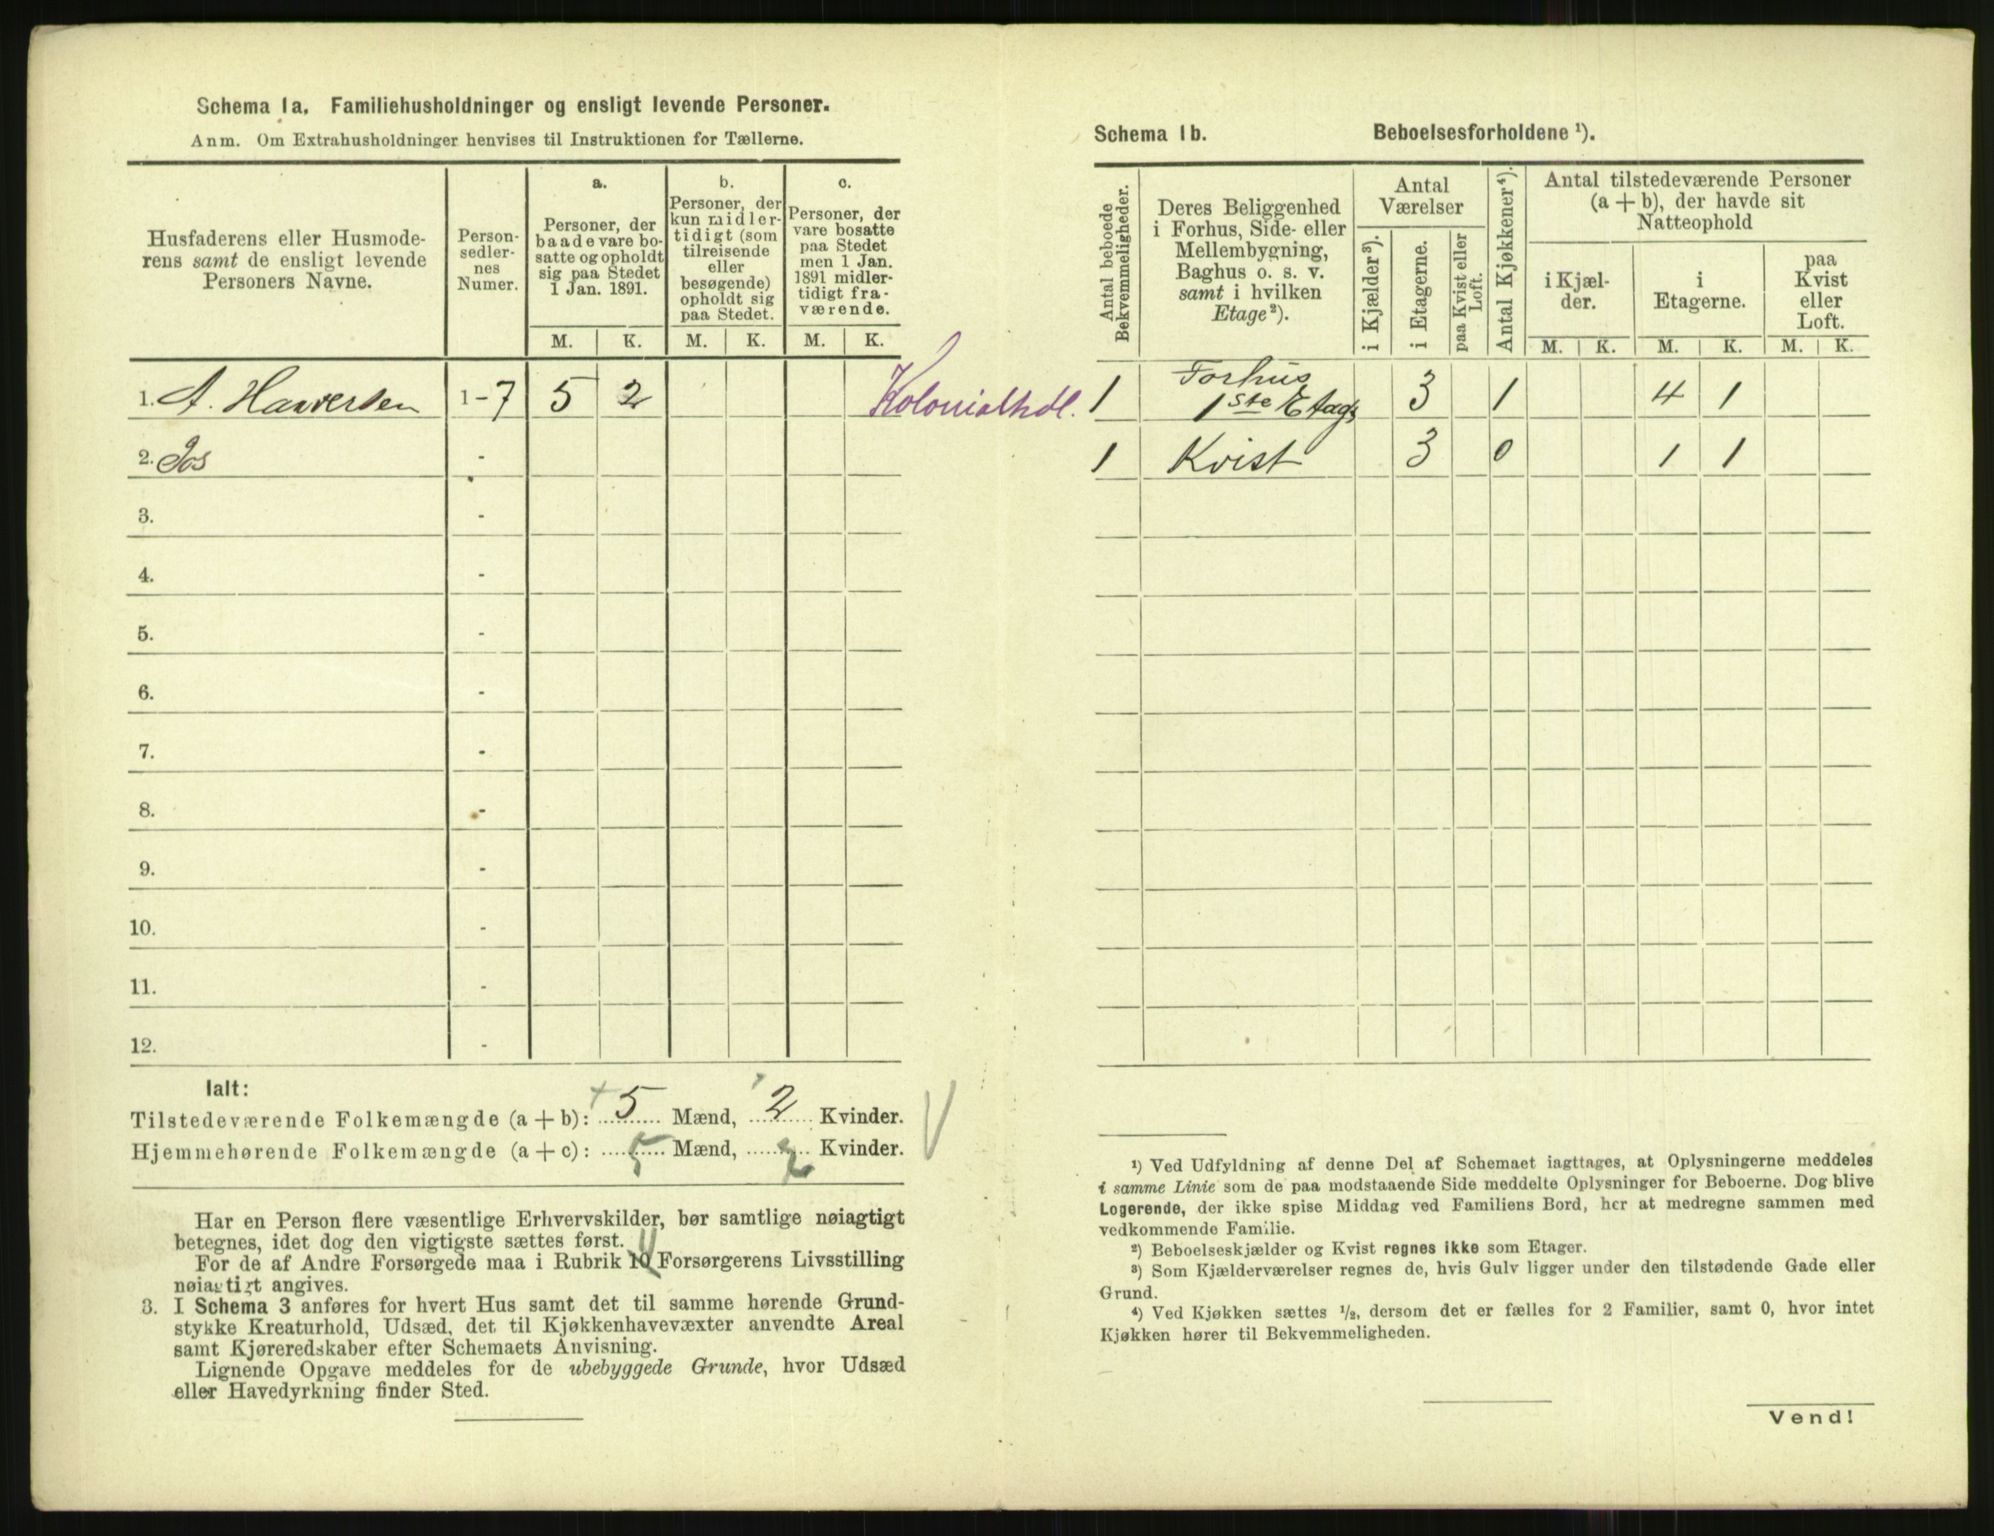 Schema 1a. Familiehusholdninger og ensligt levende Personer.
Anm. Om Extrahusholdninger henvises til Instruktionen for Tællerne.
Husfaderens eller Husmode-
rens samt de ensligt levende
Personers Navne.
Person-
sedler-
nes
Numer.
a.
Personer, der
baade vare bo-
satte og opholdt
sig paa Stedet
1 Jan. 1891.
b.
Personer, der
kun midler-
tidigt (som
tilreisende
eller
besøgende)
opholdt sig
paa Stedet.
c.
Personer, der
vare bosatte
paa Stedet
men 1 Jan.
1891 midler-
tidigt fra-
værende.
M. K. M. K. M. K.
1. A. 1-7 5 2 Kolonialhdl.
2. -
3. -
4. -
5. -
6. -
7. -
8. -
9. -
10. -
11. -
12. -
Ialt:
Tilstedeværende Folkemængde (a + b): 5 Mænd, 2 Kvinder.
Hjemmehørende Folkemængde (a + c): 5 Mænd, 2 Kvinder.
Har en Person flere væsentlige Erhvervskilder, bør samtlige nøiagtigt
betegnes, idet dog den vigtigste sættes først.
For de af Andre Forsørgede maa i Rubrik 10 Forsørgerens Livsstilling
nøiagtigt angives.
3. I Schema 3 anføres for hvert Hus samt det til samme hørende Grund-
stykke Kreaturhold, Udsæd, det til Kjøkkenhavevæxter anvendte Areal
samt Kjøreredskaber efter Schemaets Anvisning.
Lignende Opgave meddeles for de ubebyggede Grunde, hvor Udsæd
eller Havedyrkning finder Sted.
Schema 1b. Beboelsesforholdene ¹).
Antal beboede
Bekvemmeligheder.
Deres Beliggenhed
i Forhus, Side- eller
Mellembygning,
Baghus o. s. v.
samt i hvilken
Etage²).
Antal
Værelser
i Kjælder³).
i Etagerne.
paa Kvist eller
Loft.
Antal Kjøkkener⁴).
Antal tilstedeværende Personer
(a + b), der havde sit
Natteophold
i Kjæl-
der.
i
Etagerne.
paa
Kvist
eller
Loft.
M. K. M. K. M. K.
1 Forhus
1ste Etage 3 1 4 1
1 Kvist 3 0 1 1
¹) Ved Udfyldning af denne Del af Schemaet iagttages, at Oplysningerne meddeles
i samme Linie som de paa modstaaende Side meddelte Oplysninger for Beboerne. Dog blive
Logerende, der ikke spise Middag ved Familiens Bord, her at medregne sammen med
vedkommende Familie.
²) Beboelseskjælder og Kvist regnes ikke som Etager.
³) Som Kjælderværelser regnes de, hvis Gulv ligger under den tilstødende Gade eller
Grund.
⁴) Ved Kjøkken sættes ½, dersom det er fælles for 2 Familier, samt 0, hvor intet
Kjøkken hører til Bekvemmeligheden.
Vend!